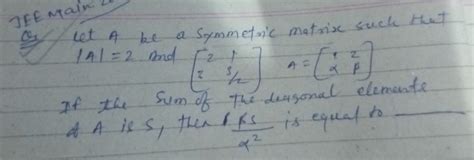 JEE Main
Q. Let A be a symmetric matrix such that
|A| = 2 and [2 1; 3 3/2] A = [1 2; α β]
If the sum of the diagonal elements
of A is S, then βS/α² is equal to ____